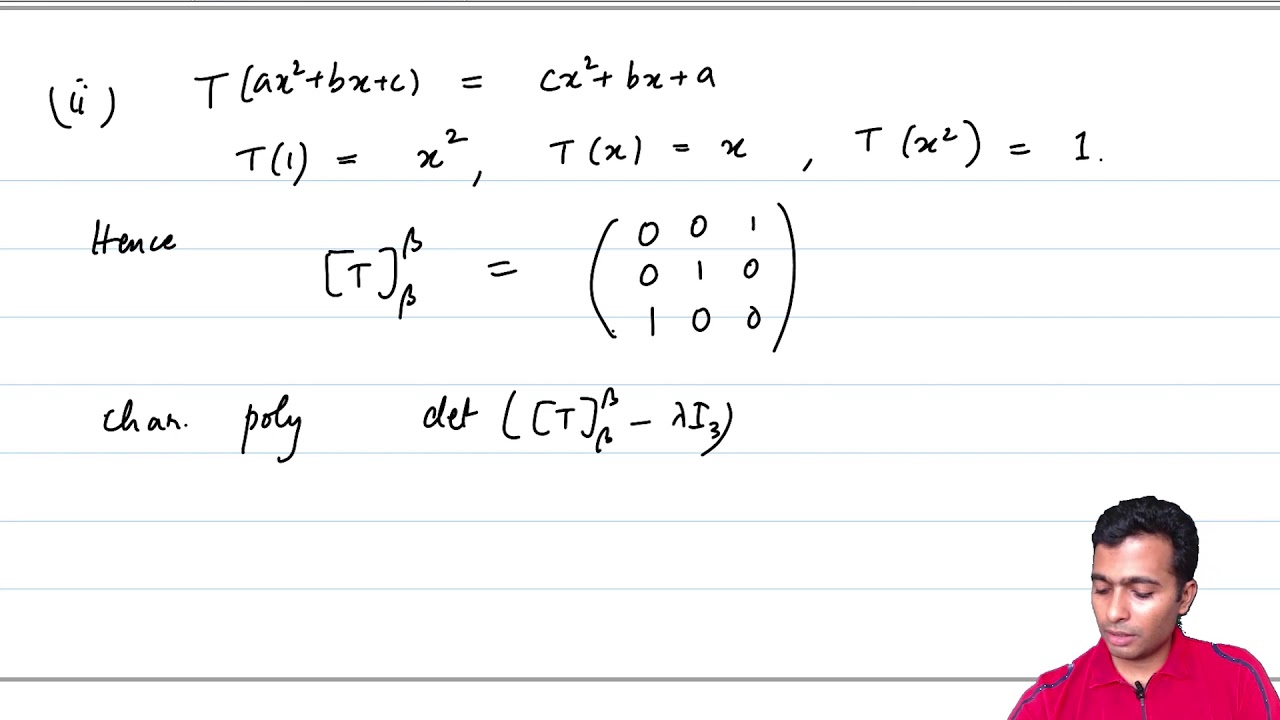 (ii) T(ax²+bx+c) = cx²+bx+a
T(1) = x², T(x) = x, T(x²) = 1.
Hence [T]_β^β = ( 0 0 1
0 1 0
1 0 0 )
char. poly det([T]_β^β - λI₃)